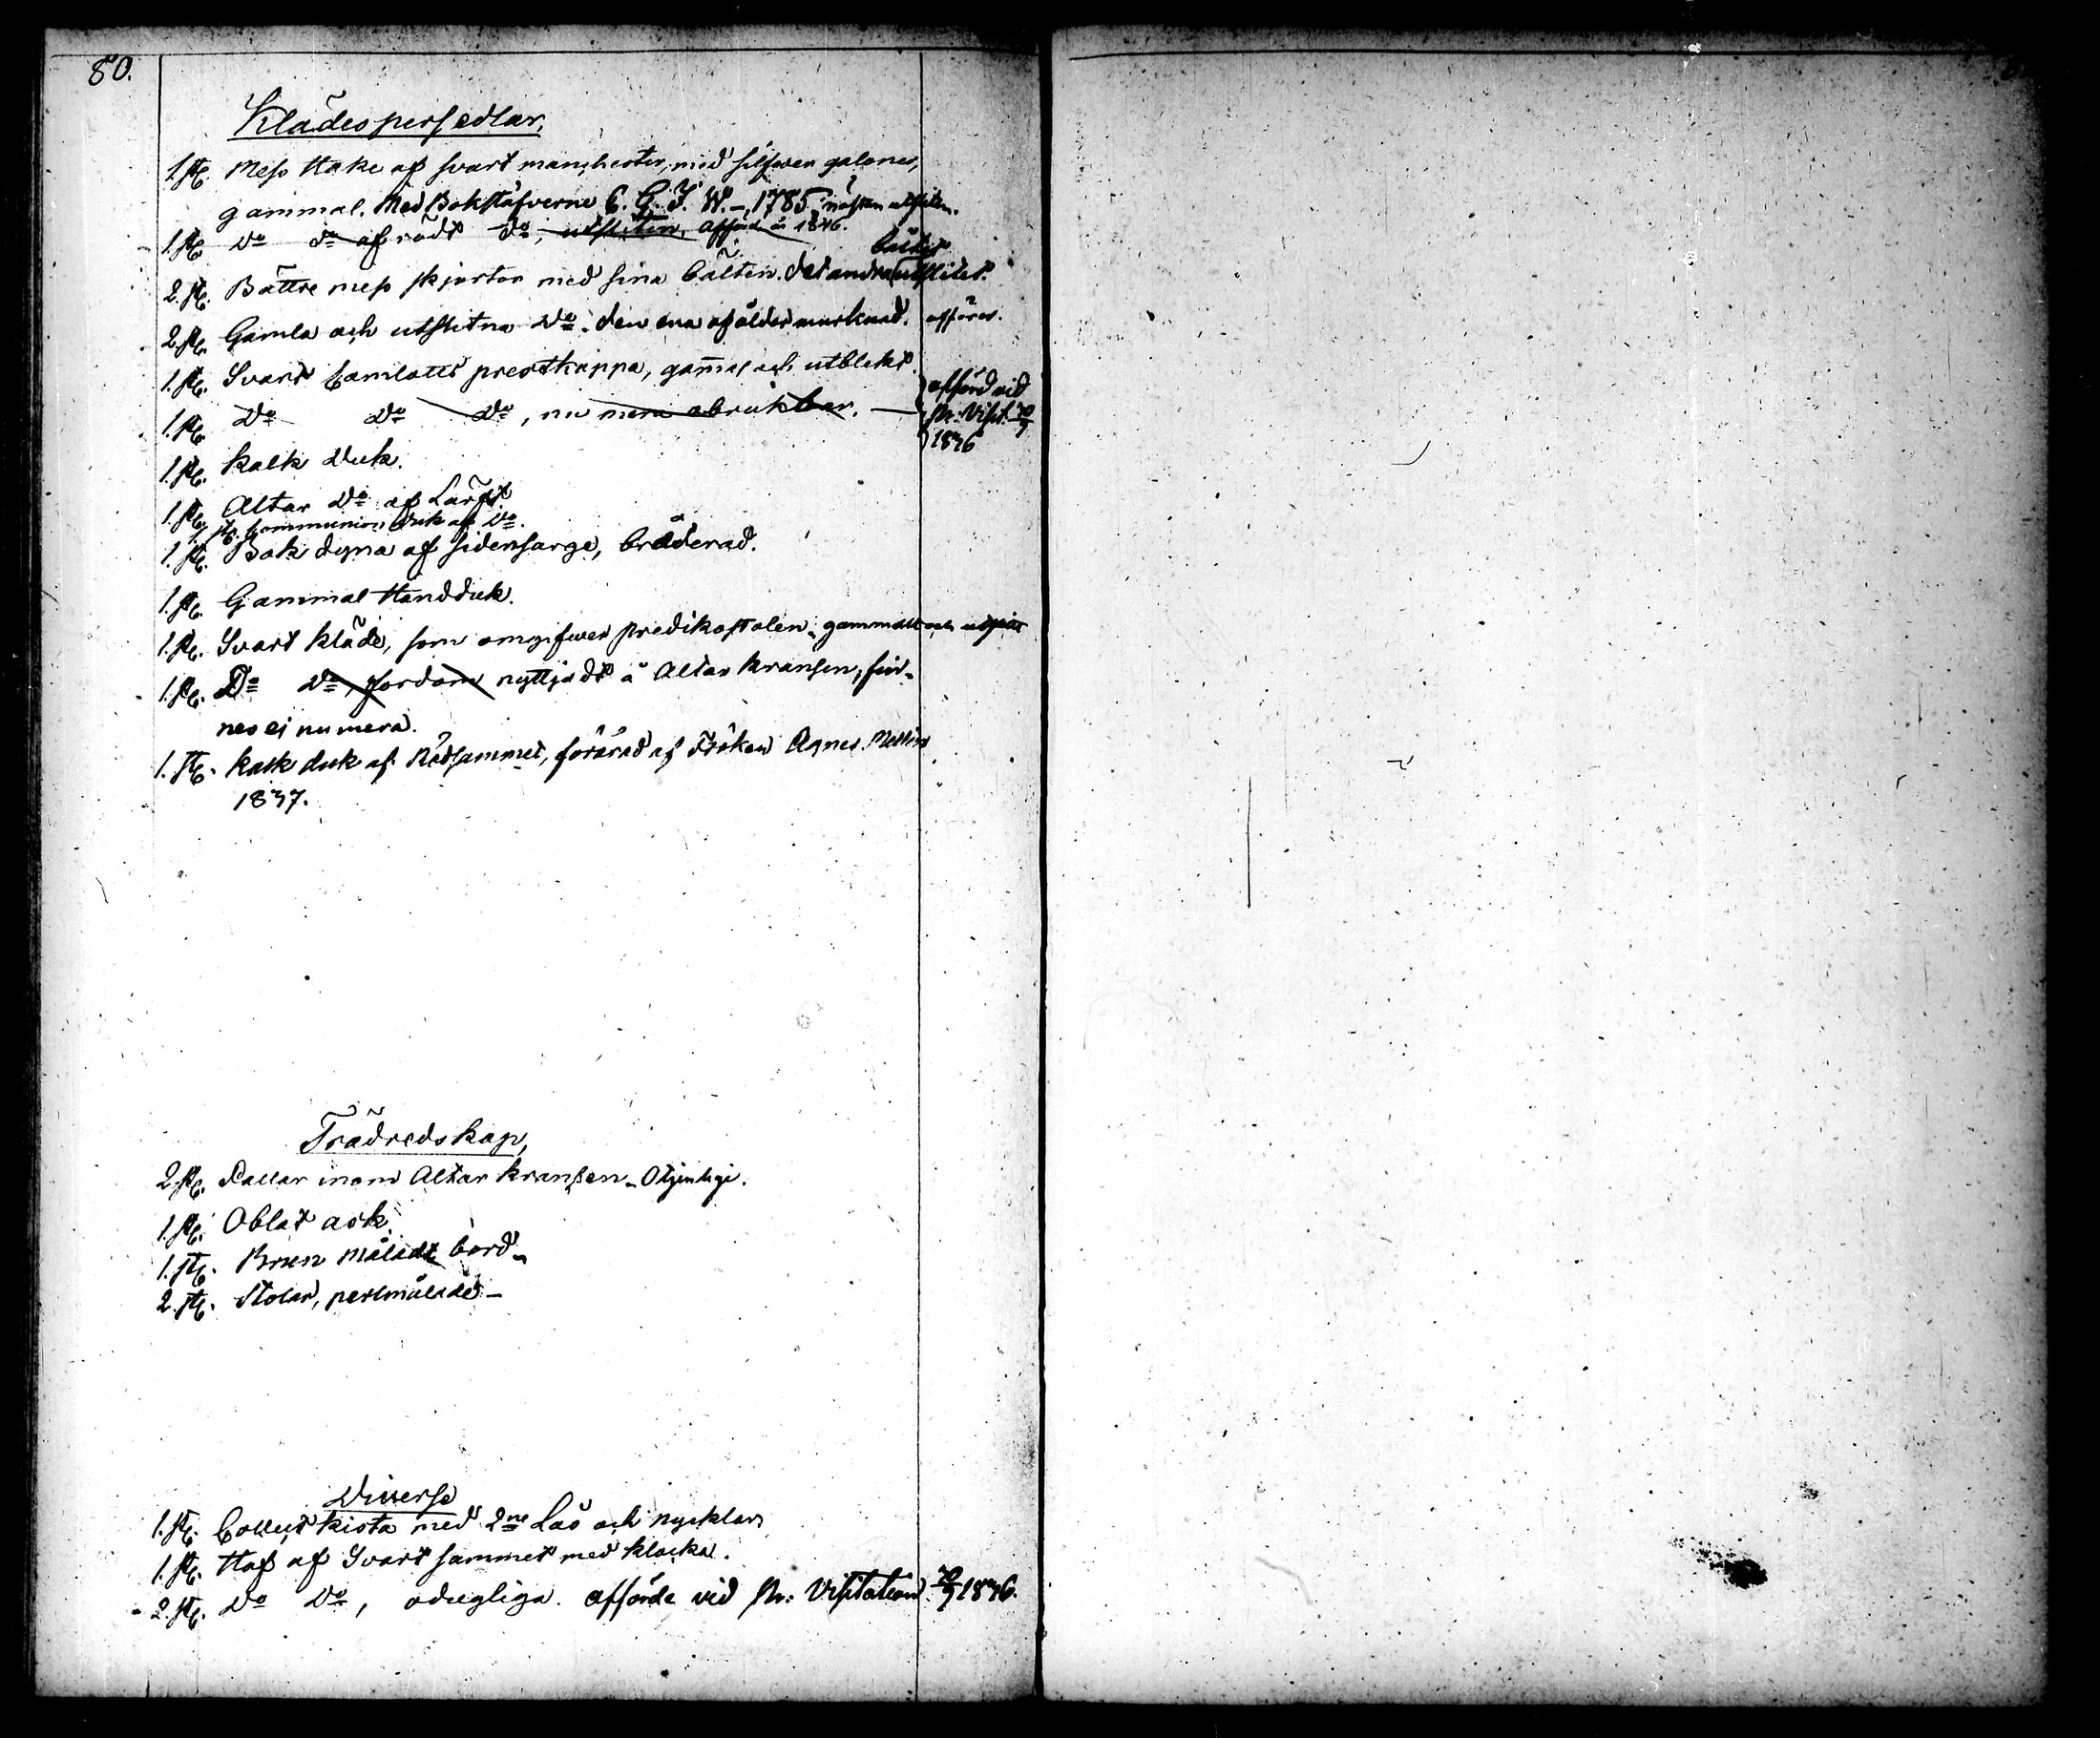 80.
Klädespersedlar,
1. st. Mess Hake af svart manchester, med silfwer galoner,
gammal. Med Bokstäfverne C. G. I. W. – 1785. nästan utsliten.
1. st. Do do af rödt do, utsliten, afförd år 1846.
2. st. Bättre mess skjortor med sina bälten. det andra bältet utslitet.
2. st. Gamla och utslitna Do. den ena af ålder murknad. afföres.
1. st. Svart Camlotts prestkappa, gam̄al och utblekt.
1. st. Do Do Do, nu mera obrukbar. — afförd vid
Pr. Visit. 20/9
1846
1. st. Kalk Duk.
1. st. Altar Do af Lärft
1 st. Communion Duk af Do.
1. st. Bok dyna af sidensarge, broderad.
1. st. Gammal Handduk.
1. st. Svart kläde, som omgifwer predikostolen. gammalt och
1. st. Do Do, fordom nyttjadt å Altar kransen, fin-
nes ej numera.
1. st. Kalk duk af Rödsammet, förärad af Fröken Agnes Mellin
1847.
Trädredskap,
2. st. Pallar inom Altar kransen – Otjenlige.
1. st. Oblat ask.
1. st. Brun måladt bord –
2. st. Stolar, perlmålade –
Diverse
1. st. Collect kista med 2ne Lås och nycklar
1. st. Håf af Svart sammet med klocka.
2. st. Do Do, odugliga. afförde vid Pr. Visitation 20/9 1846.